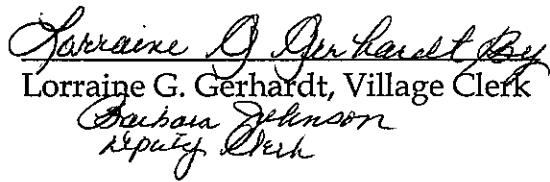 Lorraine G Gerhardt By
Lorraine G. Gerhardt, Village Clerk
Barbara Johnson
Deputy Clerk